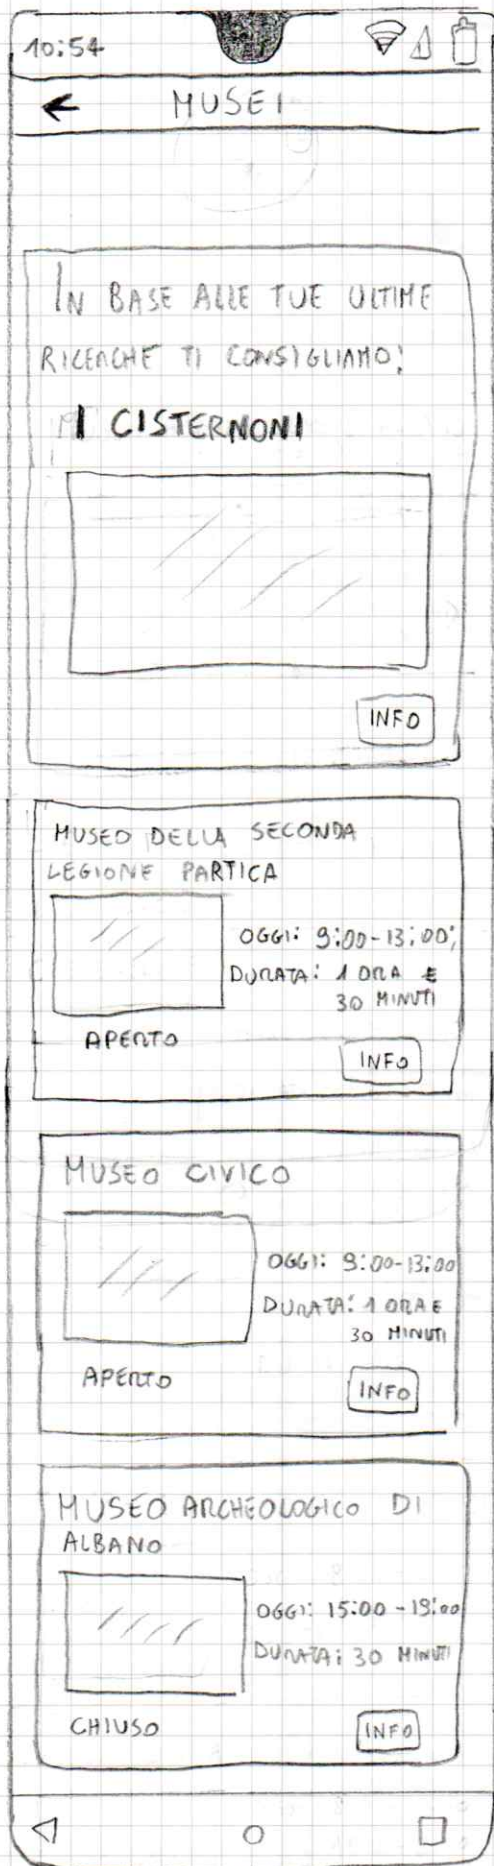 10:54
MUSEI
IN BASE ALLE TUE ULTIME
RICERCHE TI CONSIGLIAMO:
I CISTERNONI
INFO
MUSEO DELLA SECONDA
LEGIONE PARTICA
OGGI: 9:00-13:00;
DURATA: 1 ORA E
30 MINUTI
APERTO
INFO
MUSEO CIVICO
OGGI: 9:00-13:00
DURATA: 1 ORA E
30 MINUTI
APERTO
INFO
MUSEO ARCHEOLOGICO DI
ALBANO
OGGI: 15:00-19:00
DURATA: 30 MINUTI
CHIUSO
INFO